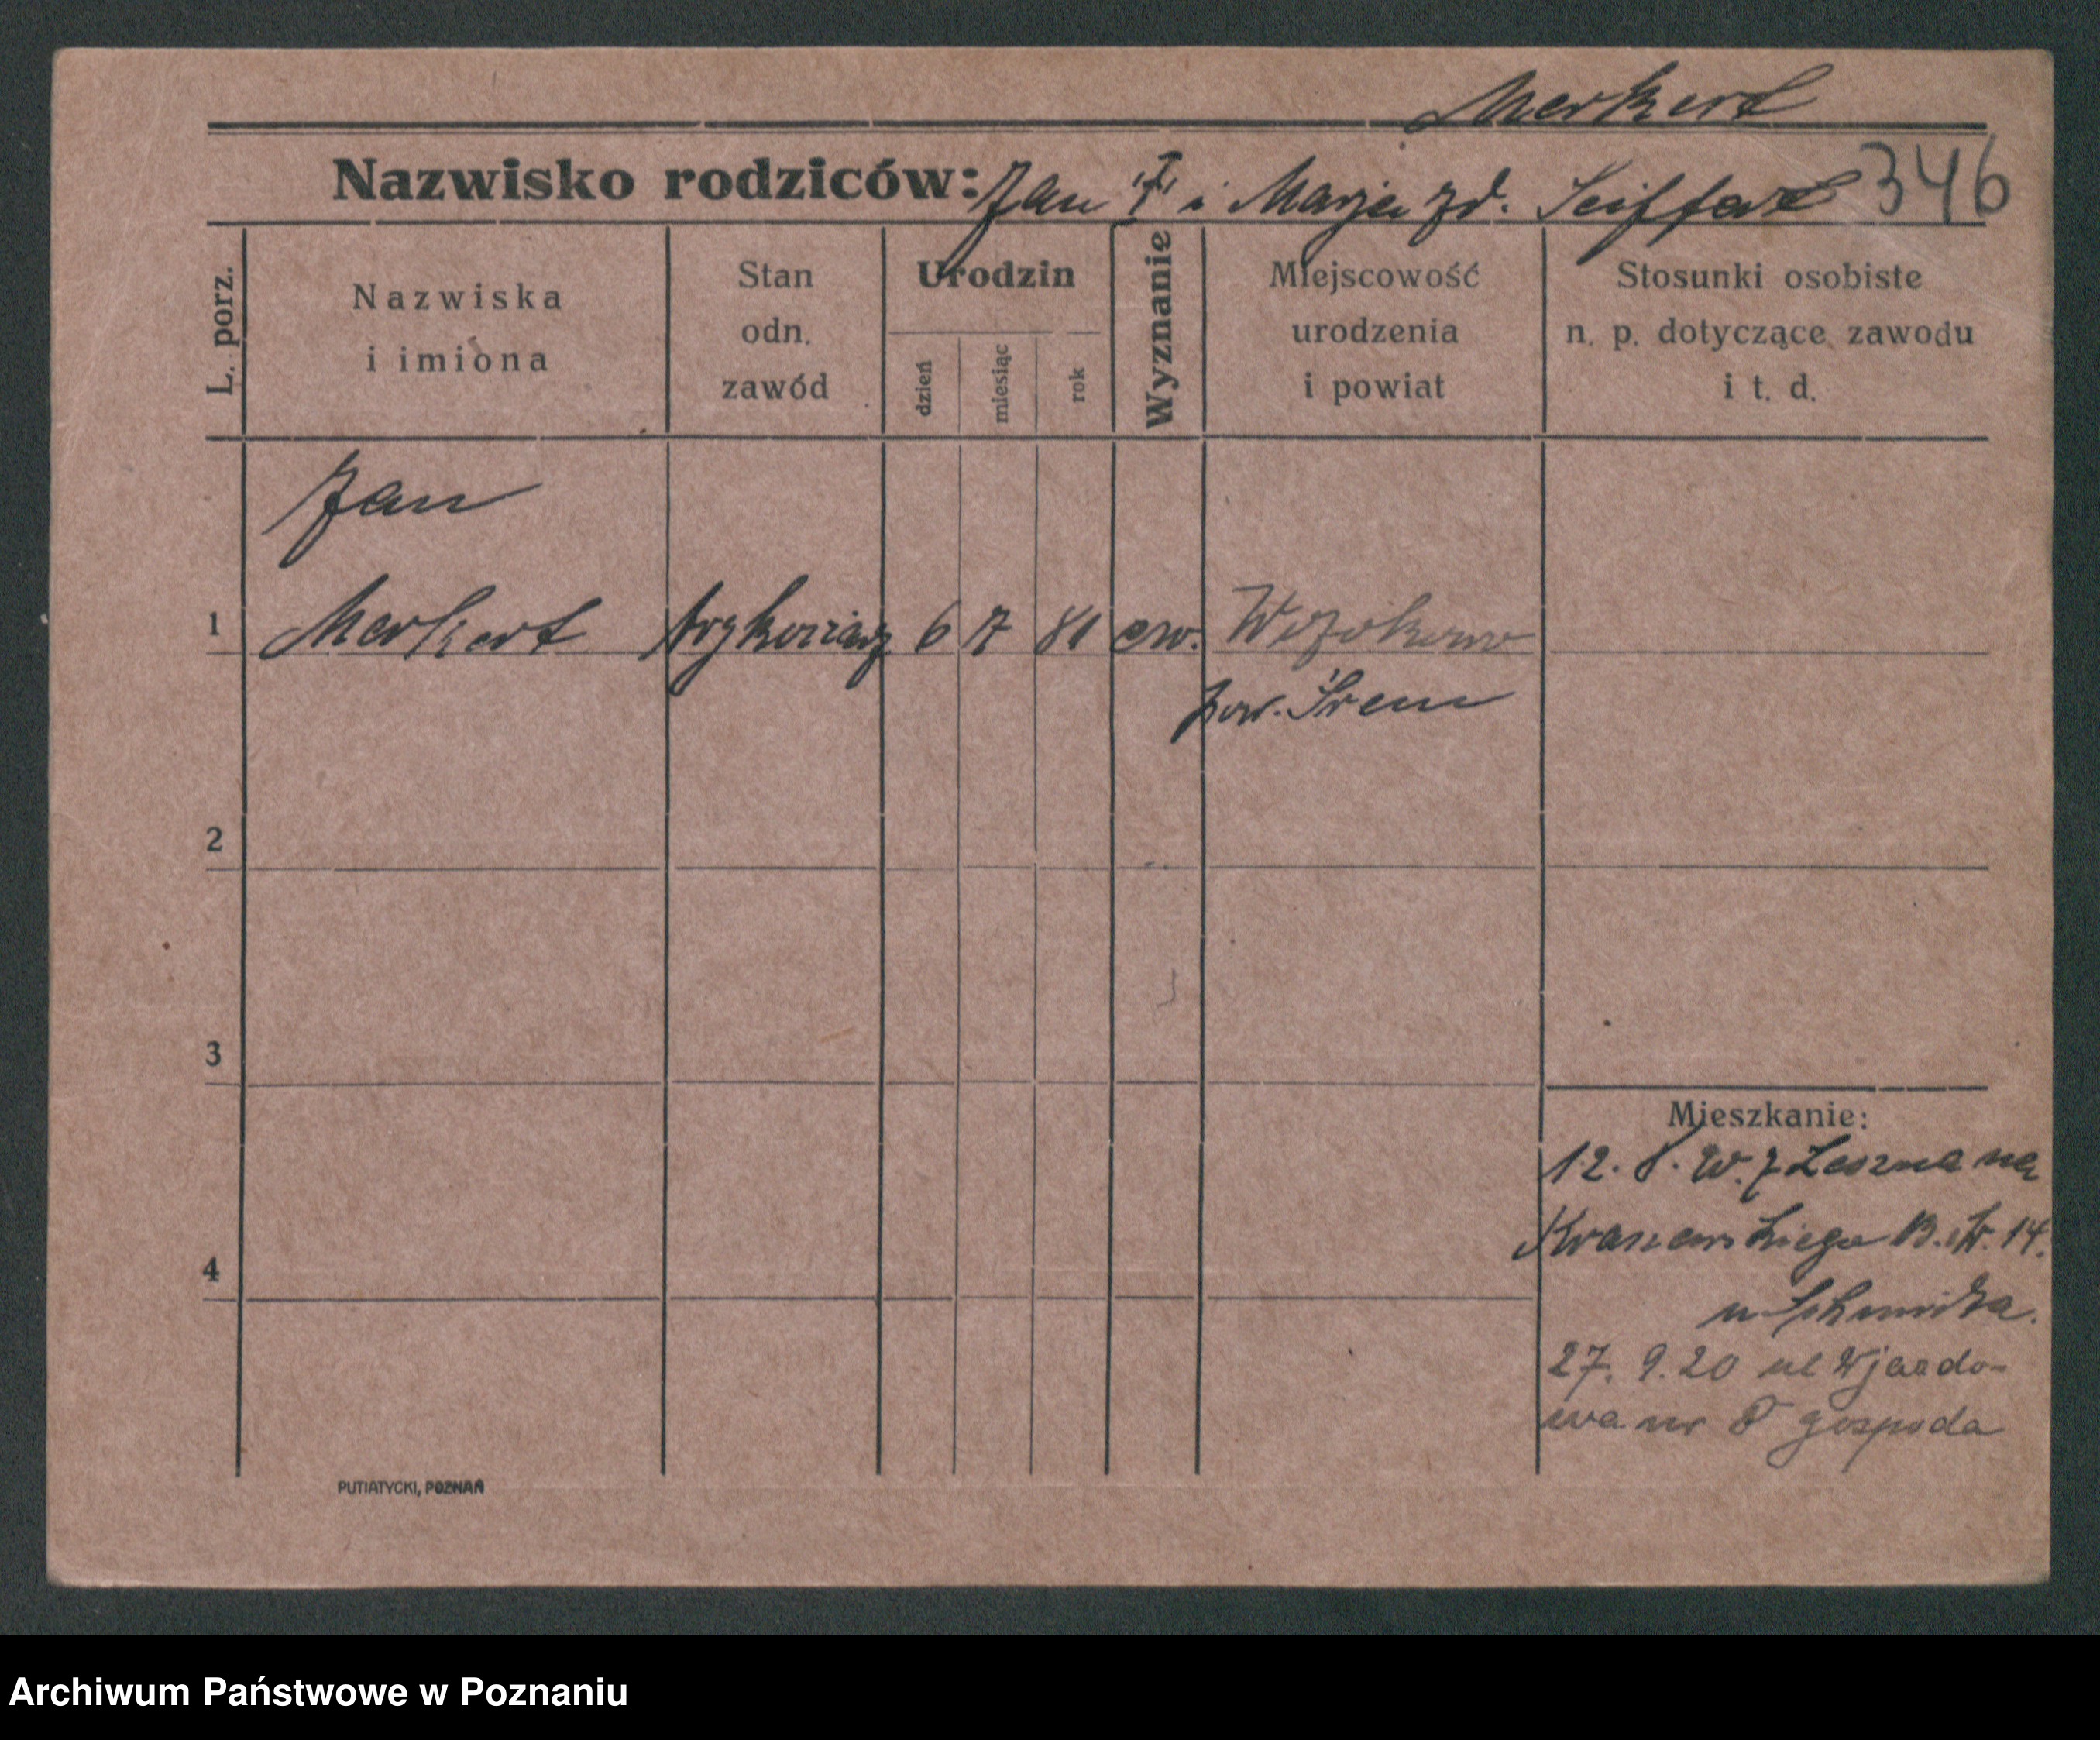 Merkert
Nazwisko rodziców: Jan "†" i Marja zd. Seiffert 346
L. porz.
Nazwiska
i imiona
Stan
odn.
zawód
Urodzin
dzień
miesiąc
rok
Wyznanie
Miejscowość
urodzenia
i powiat
Stosunki osobiste
n. p. dotyczące zawodu
i t. d.
Jan
1 Merkert 6 7 81 ew.
pow. Śrem
2
3
4
Mieszkanie:
12. 8. W. z Leszna na
Kraszewskiego B. 14.
u Schmidta.
27. 9. 20 ul Wjazdo-
wa nr 8 gospoda
PUTIATYCKI, POZNAŃ
Archiwum Państwowe w Poznaniu